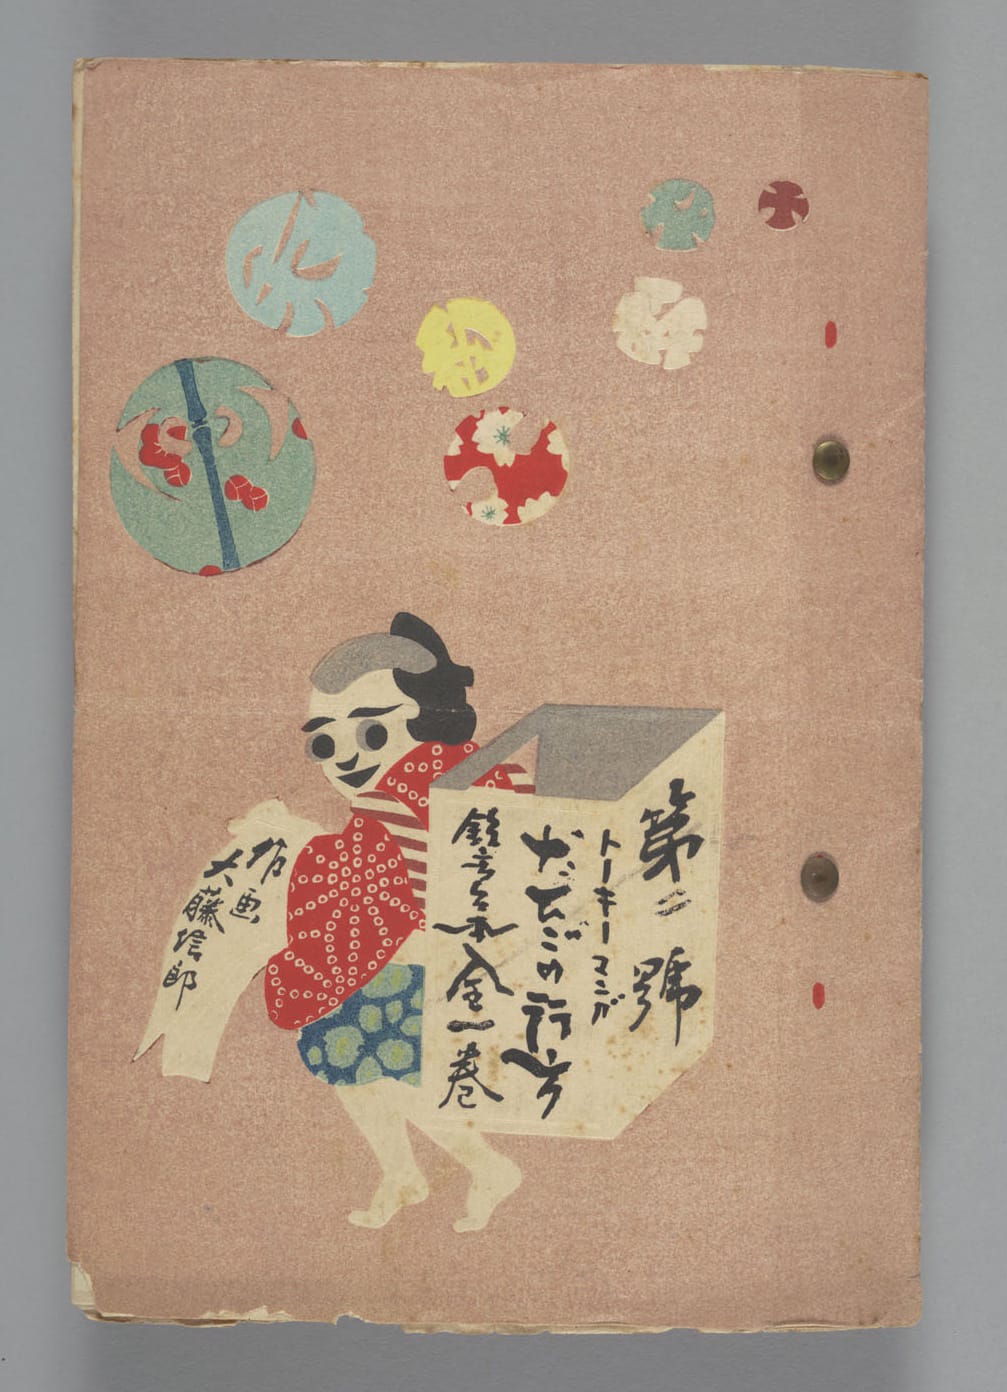 第二號
トーキーマンガ
だんごの行方
錄音台本全一巻
作画
大藤信郎